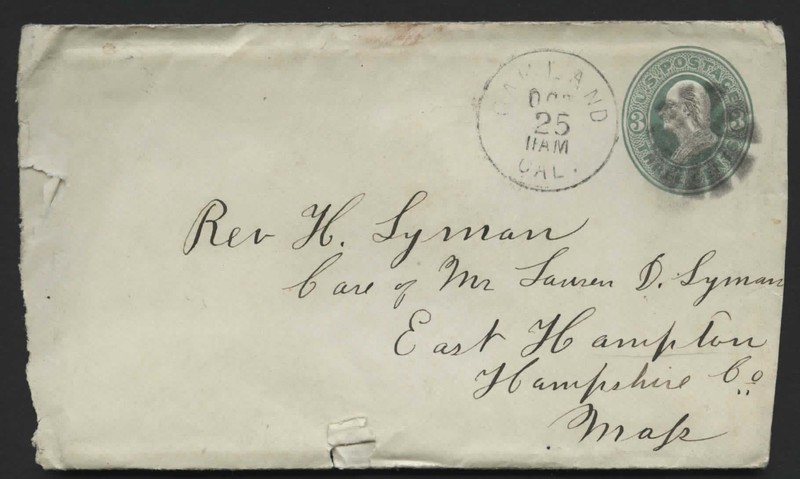 OAKLAND
25
11AM
CAL.
U.S. POSTAGE
3 3
Rev H. Lyman
Care of Mr Lauren D. Lyman
East Hampton
Hampshire Co
Mass